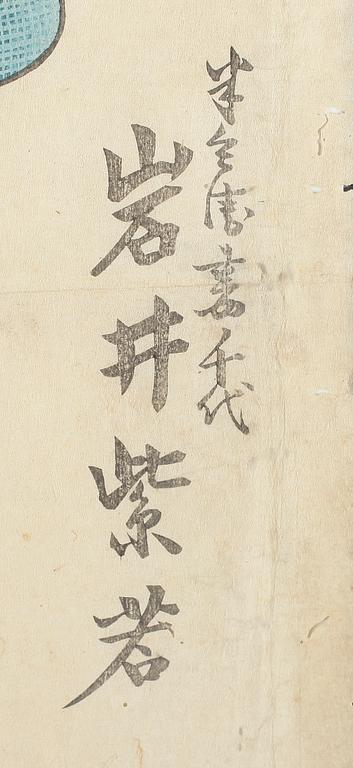 半兵衛妻千代
岩井紫若